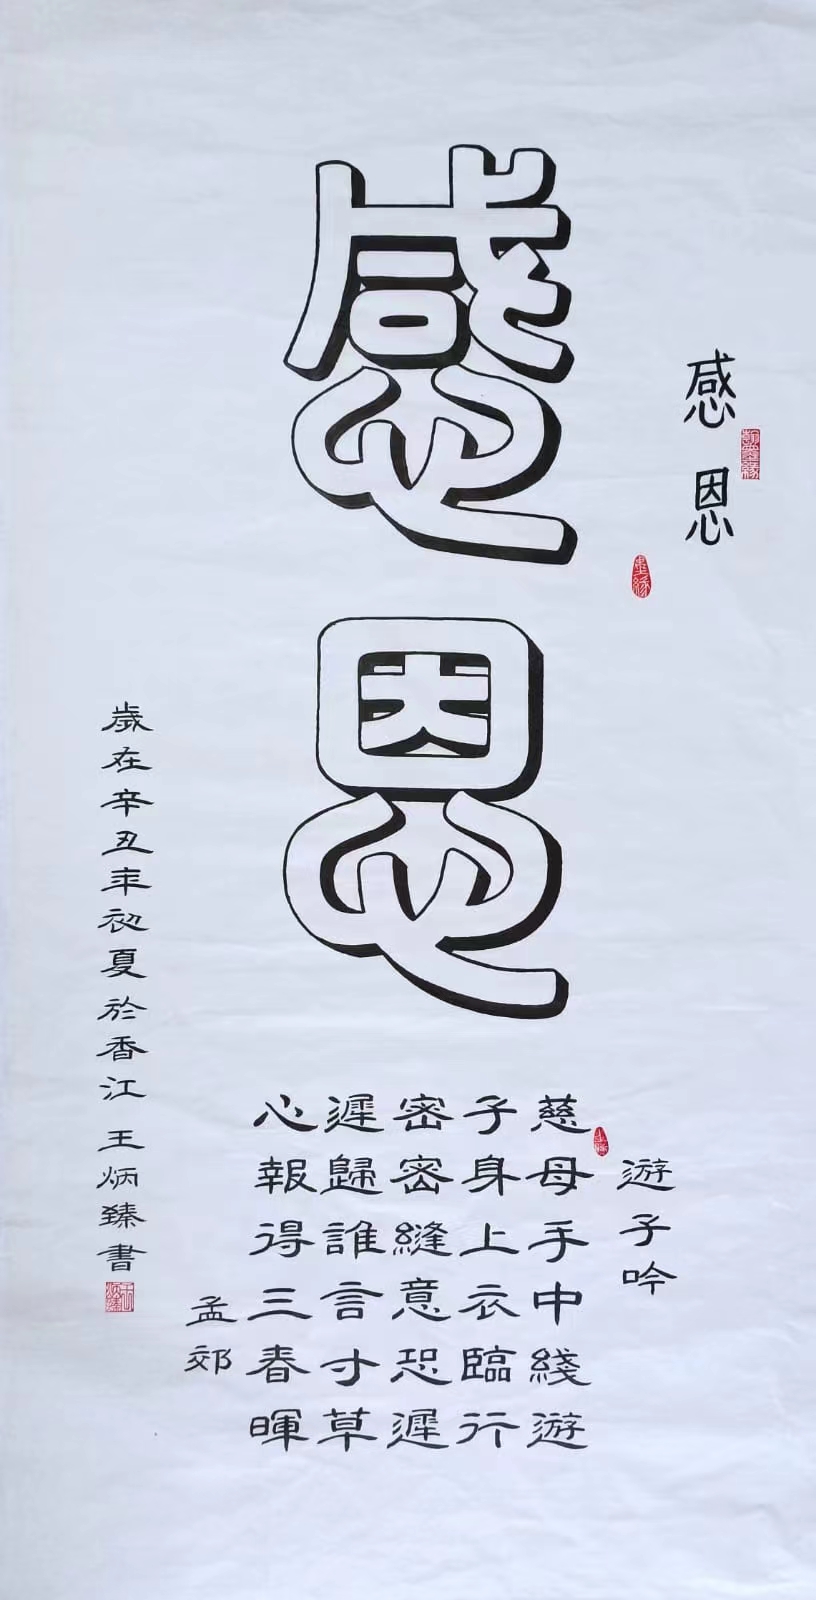 感恩
翰墨緣
墨緣
感恩
遊子吟
慈母手中綫遊
子身上衣臨行
密密縫意恐遲
遲歸誰言寸草
心報得三春暉
孟郊
歲在辛丑年初夏於香江 王炳臻書